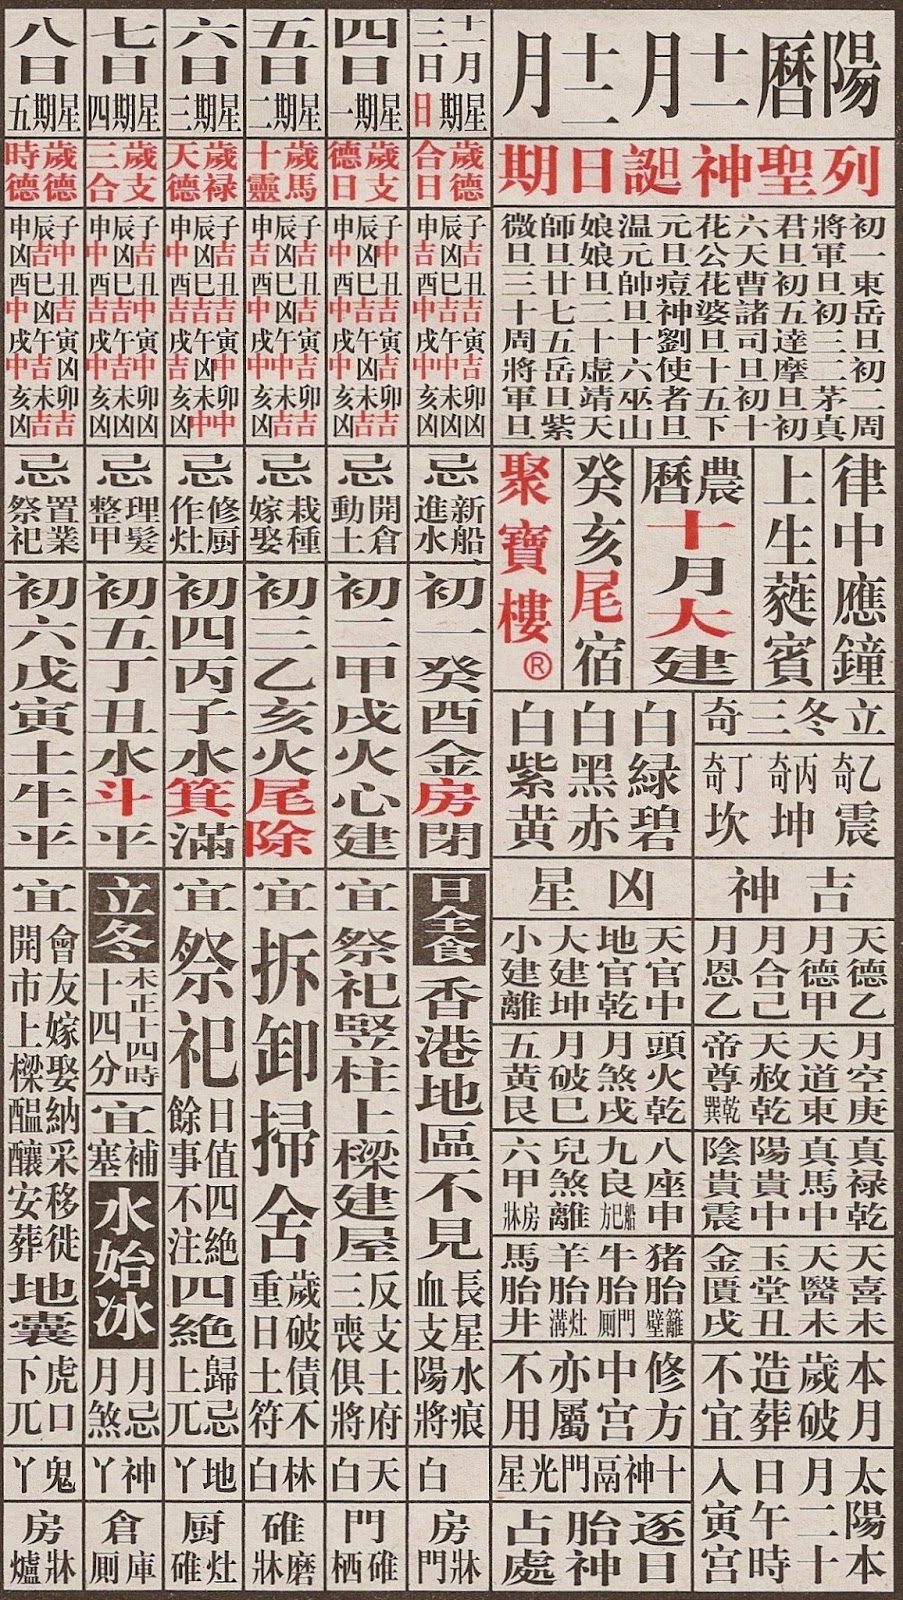 陽曆十一月十二月
列聖神誕日期
初一東岳旦初二周
將軍旦初三三茅真
君旦初五達摩旦初
六天曹諸司旦初十
花公花婆旦十五下
元旦痘神劉使者旦
温元帥旦十六巫山
娘娘旦二十虛靖天
師旦廿七五岳旦紫
微旦三十周將軍旦
律中應鐘
上生蕤賓
農曆十月大建
癸亥尾宿
聚寶樓®
立冬三奇
乙奇震
丙奇坤
丁奇坎
白綠碧
白黑赤
白紫黃
吉神
天德乙
月德甲
月合己
月恩乙
月空庚
天道東
天赦乾
帝尊乾巽
真禄乾
真馬中
陽貴中
陰貴震
天喜未
天醫未
玉堂丑
金匱戌
本月歲破造葬不宜
太陽本月二十日午時入寅宮
凶星
天官中
地官乾
大建坤
小建離
頭火乾
月煞戌
月破巳
五黃艮
八座申
九良船巳方
兒煞離
六甲房牀
猪胎籬壁
牛胎門厠
羊胎灶溝
馬胎井
修方中宮亦屬不用
十神鬲門光星
逐日胎神占處
十一月三日
星期日
歲德合日
子中丑吉寅吉卯吉
辰吉巳凶午吉未吉
申凶酉中戌中亥凶
忌
新船進水
初一癸酉金房閉
日全食
香港地區不見
長星水痕
血支陽將
白
房牀門
四日
星期一
歲支德日
子中丑吉寅中卯凶
辰凶巳吉午凶未吉
申中酉中戌中亥凶
忌
開倉動土
初二甲戌火心建
宜祭祀竪柱上樑建屋
反支土府
三喪俱將
天白
門碓栖
五日
星期二
歲馬十靈
子中丑吉寅吉卯吉
辰凶巳凶午中未吉
申吉酉中戌中亥凶
忌
栽種嫁娶
初三乙亥火尾除
宜拆卸掃舍
歲破債不
重日土符
林白
碓磨牀
六日
星期三
歲禄天德
子吉丑吉寅中卯中
辰吉巳吉午凶未中
申中酉吉戌吉亥凶
忌
修厨作灶
初四丙子水箕滿
宜祭祀
日值四絶
餘事不注
四絶
歸忌
上兀
地丫
厨灶碓
七日
星期四
歲支三合
子吉丑中寅中卯凶
辰凶巳吉午吉未凶
申中酉吉戌中亥凶
忌
理髮整甲
初五丁丑水斗平
立冬
未正十四時十四分
宜補塞
水始冰
月忌
月煞
神丫
倉庫厠
八日
星期五
歲德時德
子中丑吉寅凶卯吉
辰吉巳凶午吉未吉
申凶酉中戌中亥凶
忌
置業祭祀
初六戊寅土牛平
宜會友嫁娶納采移徙
開市上樑醞釀安葬
地囊
虎口
下兀
鬼丫
房牀爐